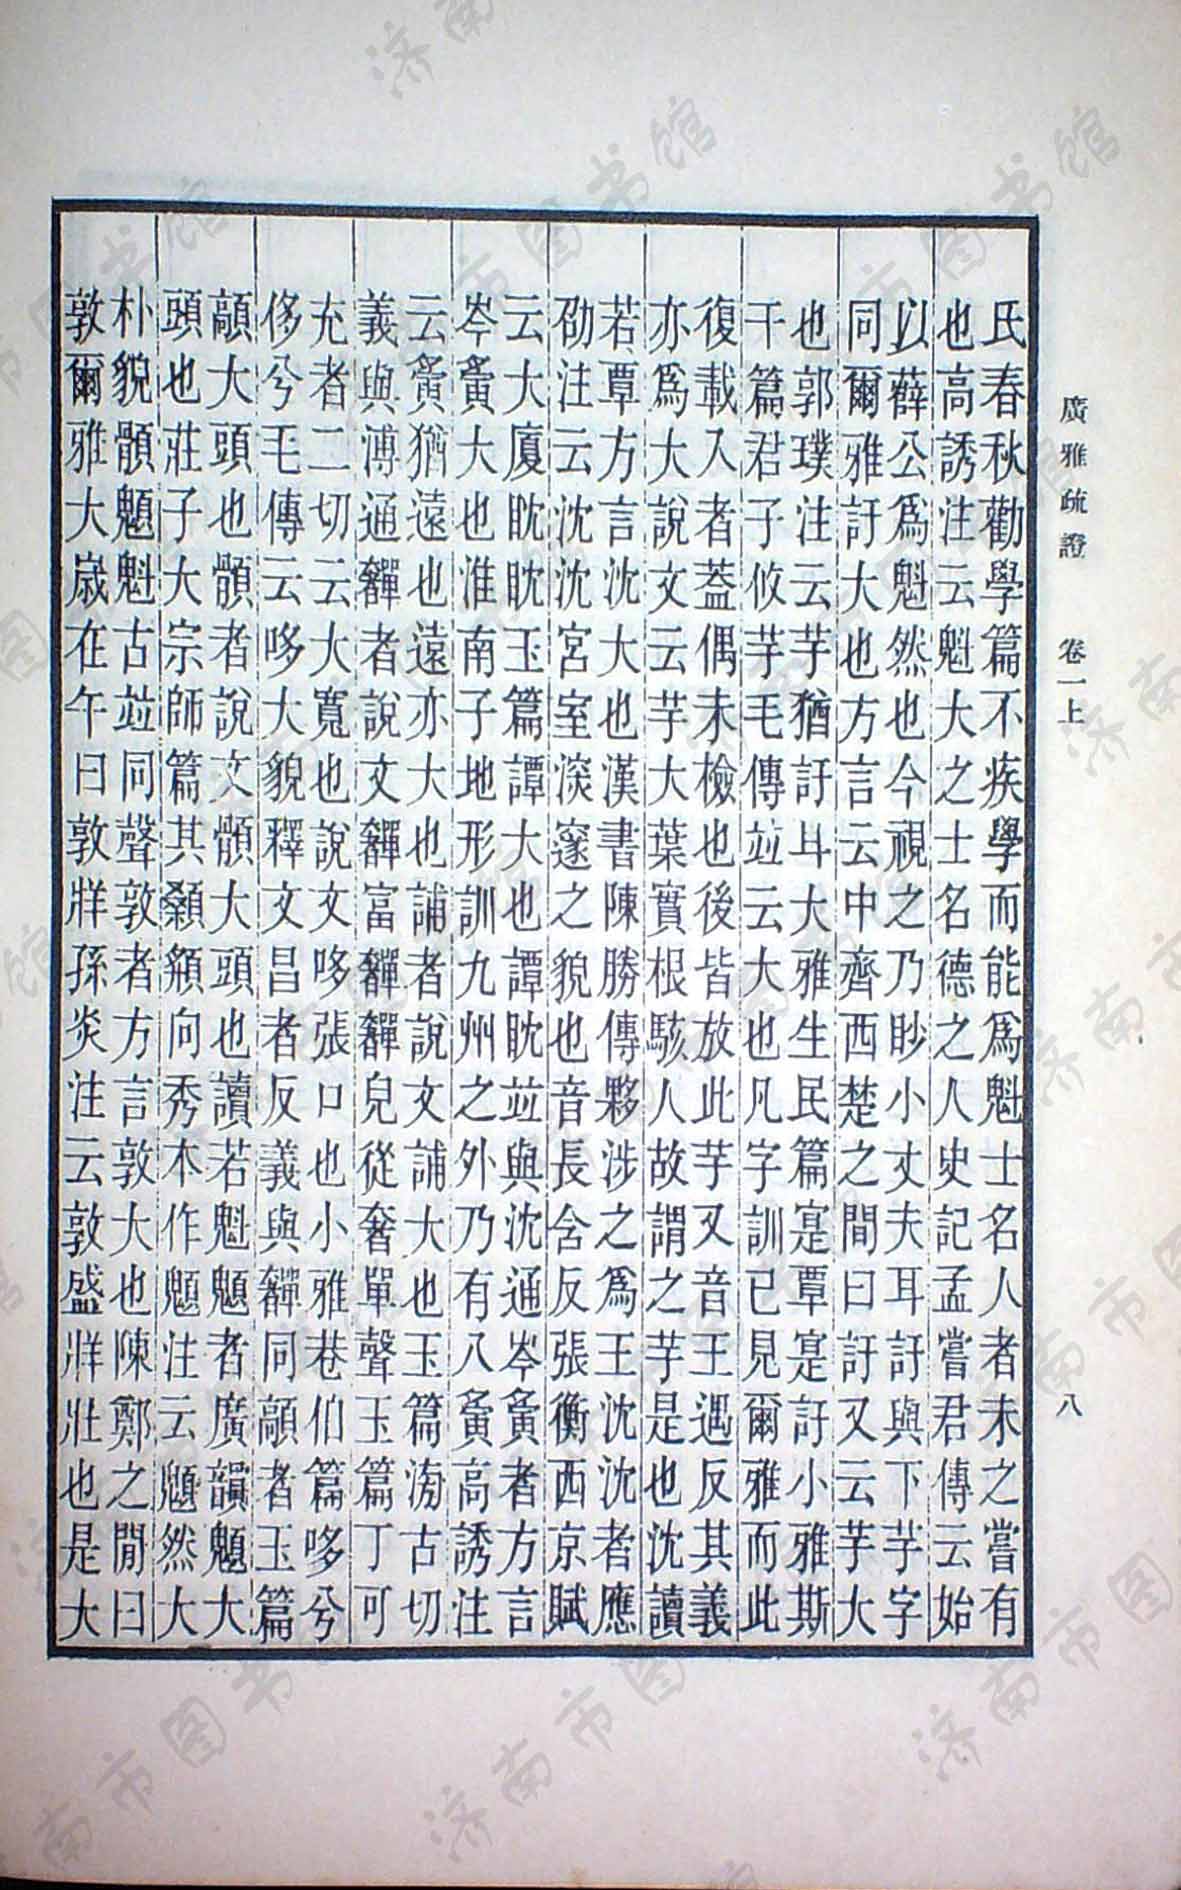 廣雅疏證 卷一上 八
氏春秋勸學篇不疾學而能爲魁士名人者未之嘗有
也高誘注云魁大之士名德之人史記孟嘗君傳云始
以薛公爲魁然也今視之乃眇小丈夫耳訏與下芋字
同爾雅訏大也方言云中齊西楚之間曰訏又云芋大
也郭璞注云芋猶訏耳大雅生民篇寔覃寔訏小雅斯
干篇君子攸芋毛傳竝云大也凡字訓已見爾雅而此
復載入者蓋偶未檢也後皆放此芋又音王遇反其義
亦爲大說文云芋大葉實根駭人故謂之芋是也沈讀
若覃方言沈大也漢書陳勝傳夥涉之爲王沈沈者應
劭注云沈沈宮室深邃之貌也音長含反張衡西京賦
云大廈耽耽玉篇譚大也譚耽竝與沈通岑夤者方言
岑夤大也淮南子地形訓九州之外乃有八夤高誘注
云夤猶遠也遠亦大也誧者說文誧大也玉篇滂古切
義與溥通奲者說文奲富奲奲皃從奢單聲玉篇丁可
充者二切云大寬也說文哆張口也小雅巷伯篇哆兮
侈兮毛傳云哆大貌釋文昌者反義與奲同者玉篇
大頭也顝者說文顝大頭也讀若魁䫥者廣韻䫥大
頭也莊子大宗師篇其顙頯向秀本作䫥注云䫥然大
朴貌顝䫥魁古竝同聲敦者方言敦大也陳鄭之閒曰
敦爾雅大歲在午曰敦牂孫炎注云敦盛牂壯也是大